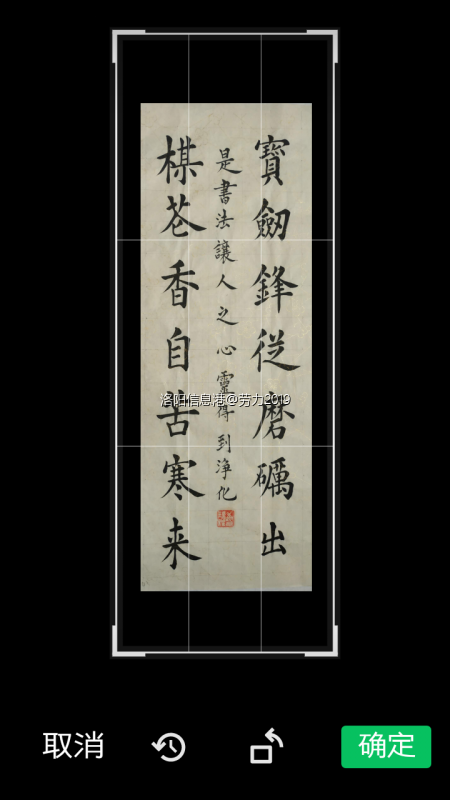 寶劒鋒従磨礪出
是書法讓人之心靈得到淨化
楳芲香自苦寒来
洛阳信息港@劳力2019
取消
确定